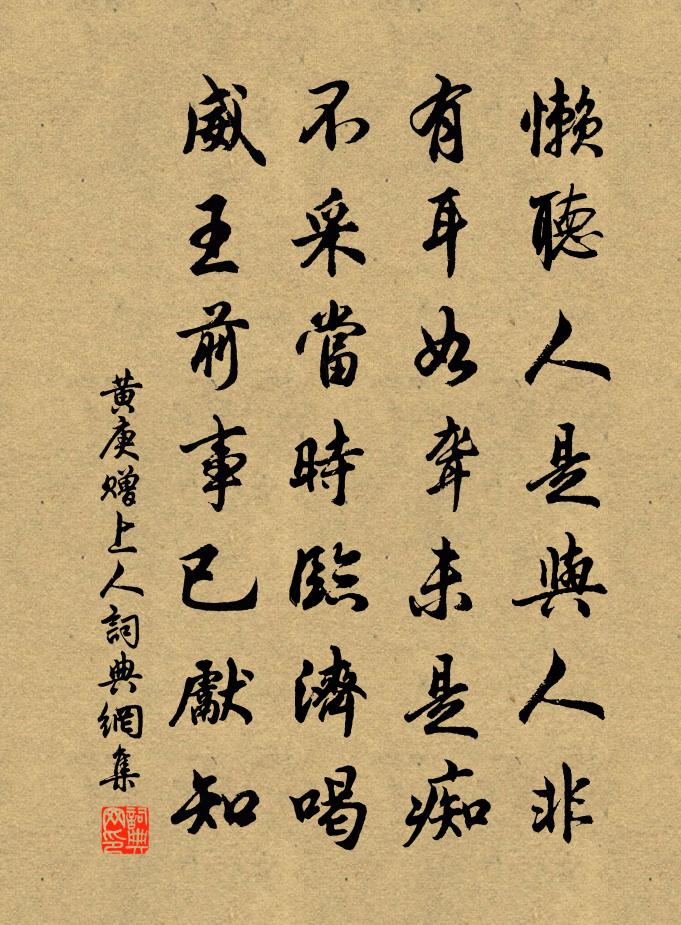 懶聽人是與人非
有耳如聾未是痴
不采當時臨濟喝
威王前事已獻知
黃庚贈上人詞典網集
詞典網印